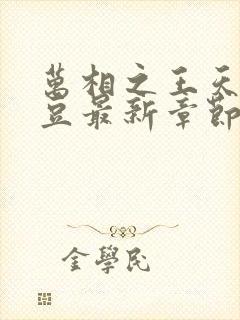 萬相之王天
豆最新章節
金學民